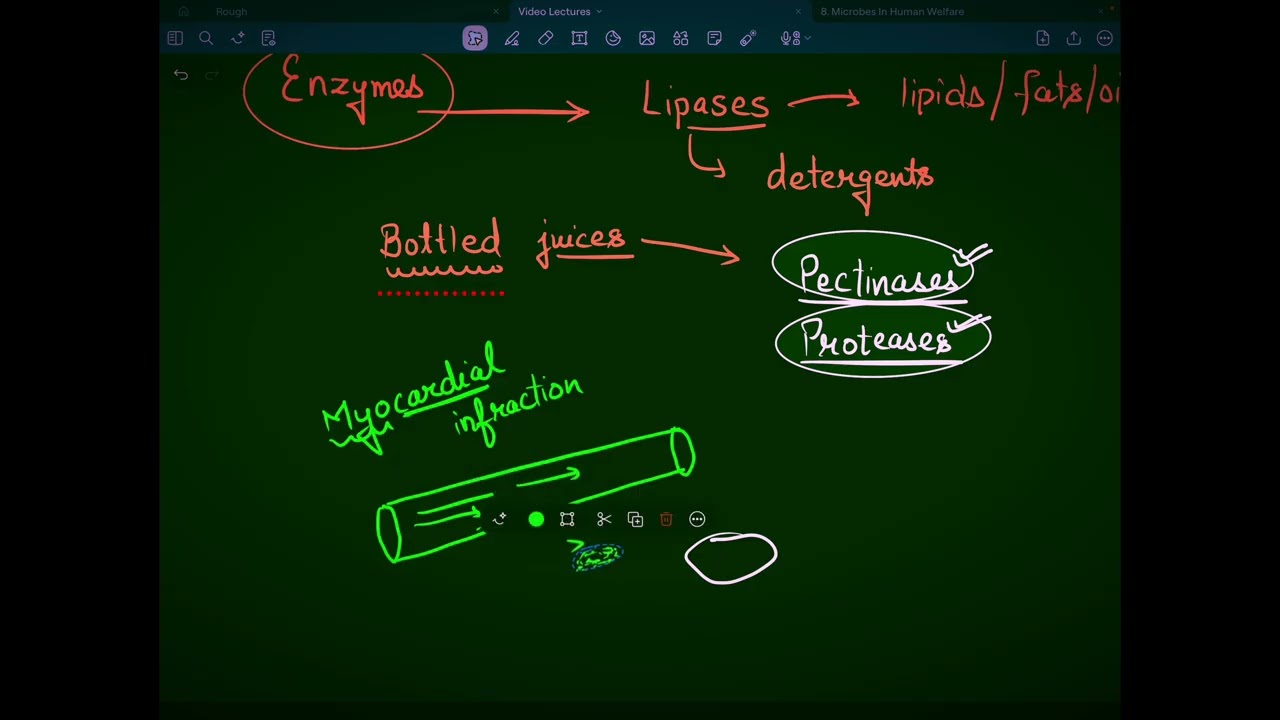 Rough
Video Lectures
8. Microbes In Human Welfare
Enzymes → Lipases → lipids/fats/oi
detergents
Bottled juices → Pectinases
Proteases
Myocardial
infraction